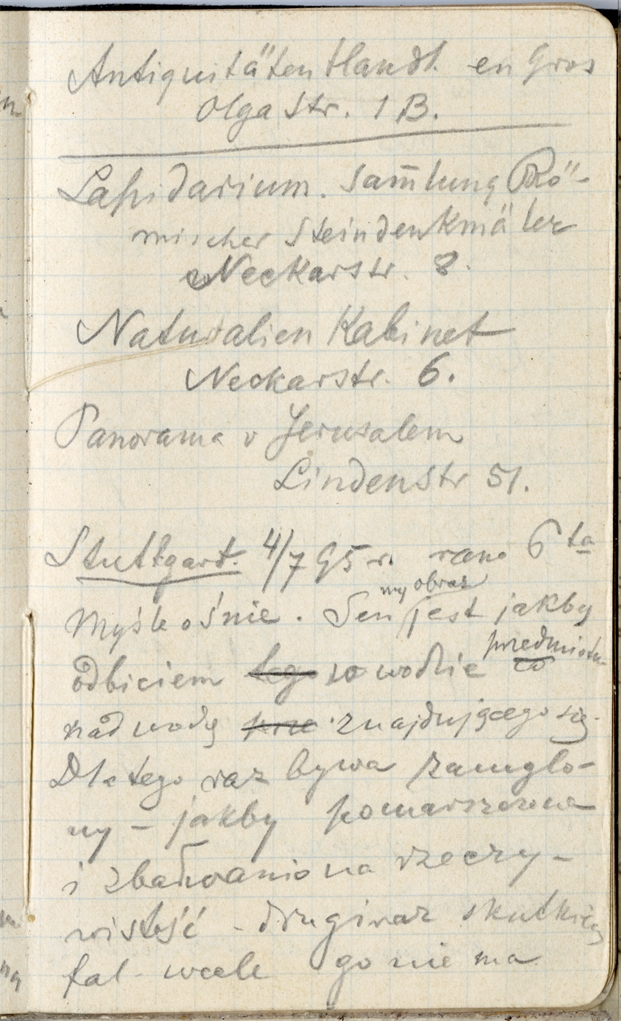 Antiquitäten Handl. en Gros
Olga Str. 1 B.
Lapidarium. Sam̄lung Rö-
mischer Steindenkmäler
Neckarstr. 8.
Naturalien Kabinet
Neckarstr. 6.
Panorama v Jerusalem
Lindenstr 51.
Stuttgart. 4/7 95 r. rano 6 ta
ny obraz
Myśle o śnie. Sen jest jakby
przedmiotu
odbiciem tego w wodzie co
nad wodą prze znajdującego się.
Dlatego raz bywa zamglo-
ny - jakby pomarszczona
i zbałwaniona rzeczy-
wistość - drugi raz skutkiem
fal - wcale go nie ma